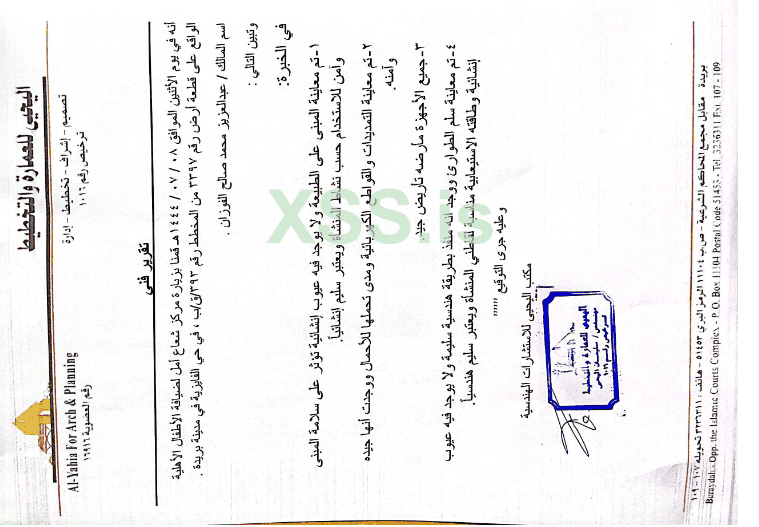 اليحيى للعمارة والتخطيط
تصميم - إشراف - تخطيط - إدارة
ترخيص رقم ١٠١٦
Al-Yahia For Arch & Planning
رقم العضوية ١٦٩١٦
تقرير فني
أنه في يوم الأثنين الموافق ٠٨ / ٠٧ / ١٤٤٤هـ قمنا بزيارة مركز شعاع أمل لضيافة الأطفال الأهلية
الواقع على قطعة أرض رقم ٢٣٩٧ من المخطط رقم ٣٩٣/ق/ب ، في حي الفايزية في مدينة بريدة .
اسم المالك / عبدالعزيز محمد صالح الفوزان .
وتبين التالي :
في الخبرة:
١-تم معاينة المبنى على الطبيعة ولا يوجد فيه عيوب إنشائية تؤثر على سلامة المبنى
وآمن للاستخدام حسب نشاط المنشأة ويعتبر سليم إنشائياً.
٢-تم معاينة التمديدات والقواطع الكهربائية ومدى تحملها للأحمال ووجدت أنها جيده
وآمنه.
٣-جميع الأجهزة مأرضه تأريض جيد
٤-تم معاينة سلم الطوارئ ووجد انه منفذ بطريقة هندسية سليمة ولا يوجد فيه عيوب
إنشائية وطاقته الاستيعابية مناسبة لقاطني المنشأة ويعتبر سليم هندسياً.
وعليه جرى التوقيع ,,,,,,
مكتب اليحيى للاستشارات الهندسية
اليحيى للعمارة والتخطيط
XSS.is
بريدة - مقابل مجمع المحاكم الشرعية - ص.ب ١١١٠٤ الرمز البريدي ٥١٤٥٣ - هاتف : ٣٢٣٦٣١١ تحويلة ١٠٧ - ١٠٩
Buraydah - Opp. the Islamic Courts Complex - P. O. Box 11104 Postal Code 51453 - Tel. 3236311 Ext. 107 - 109